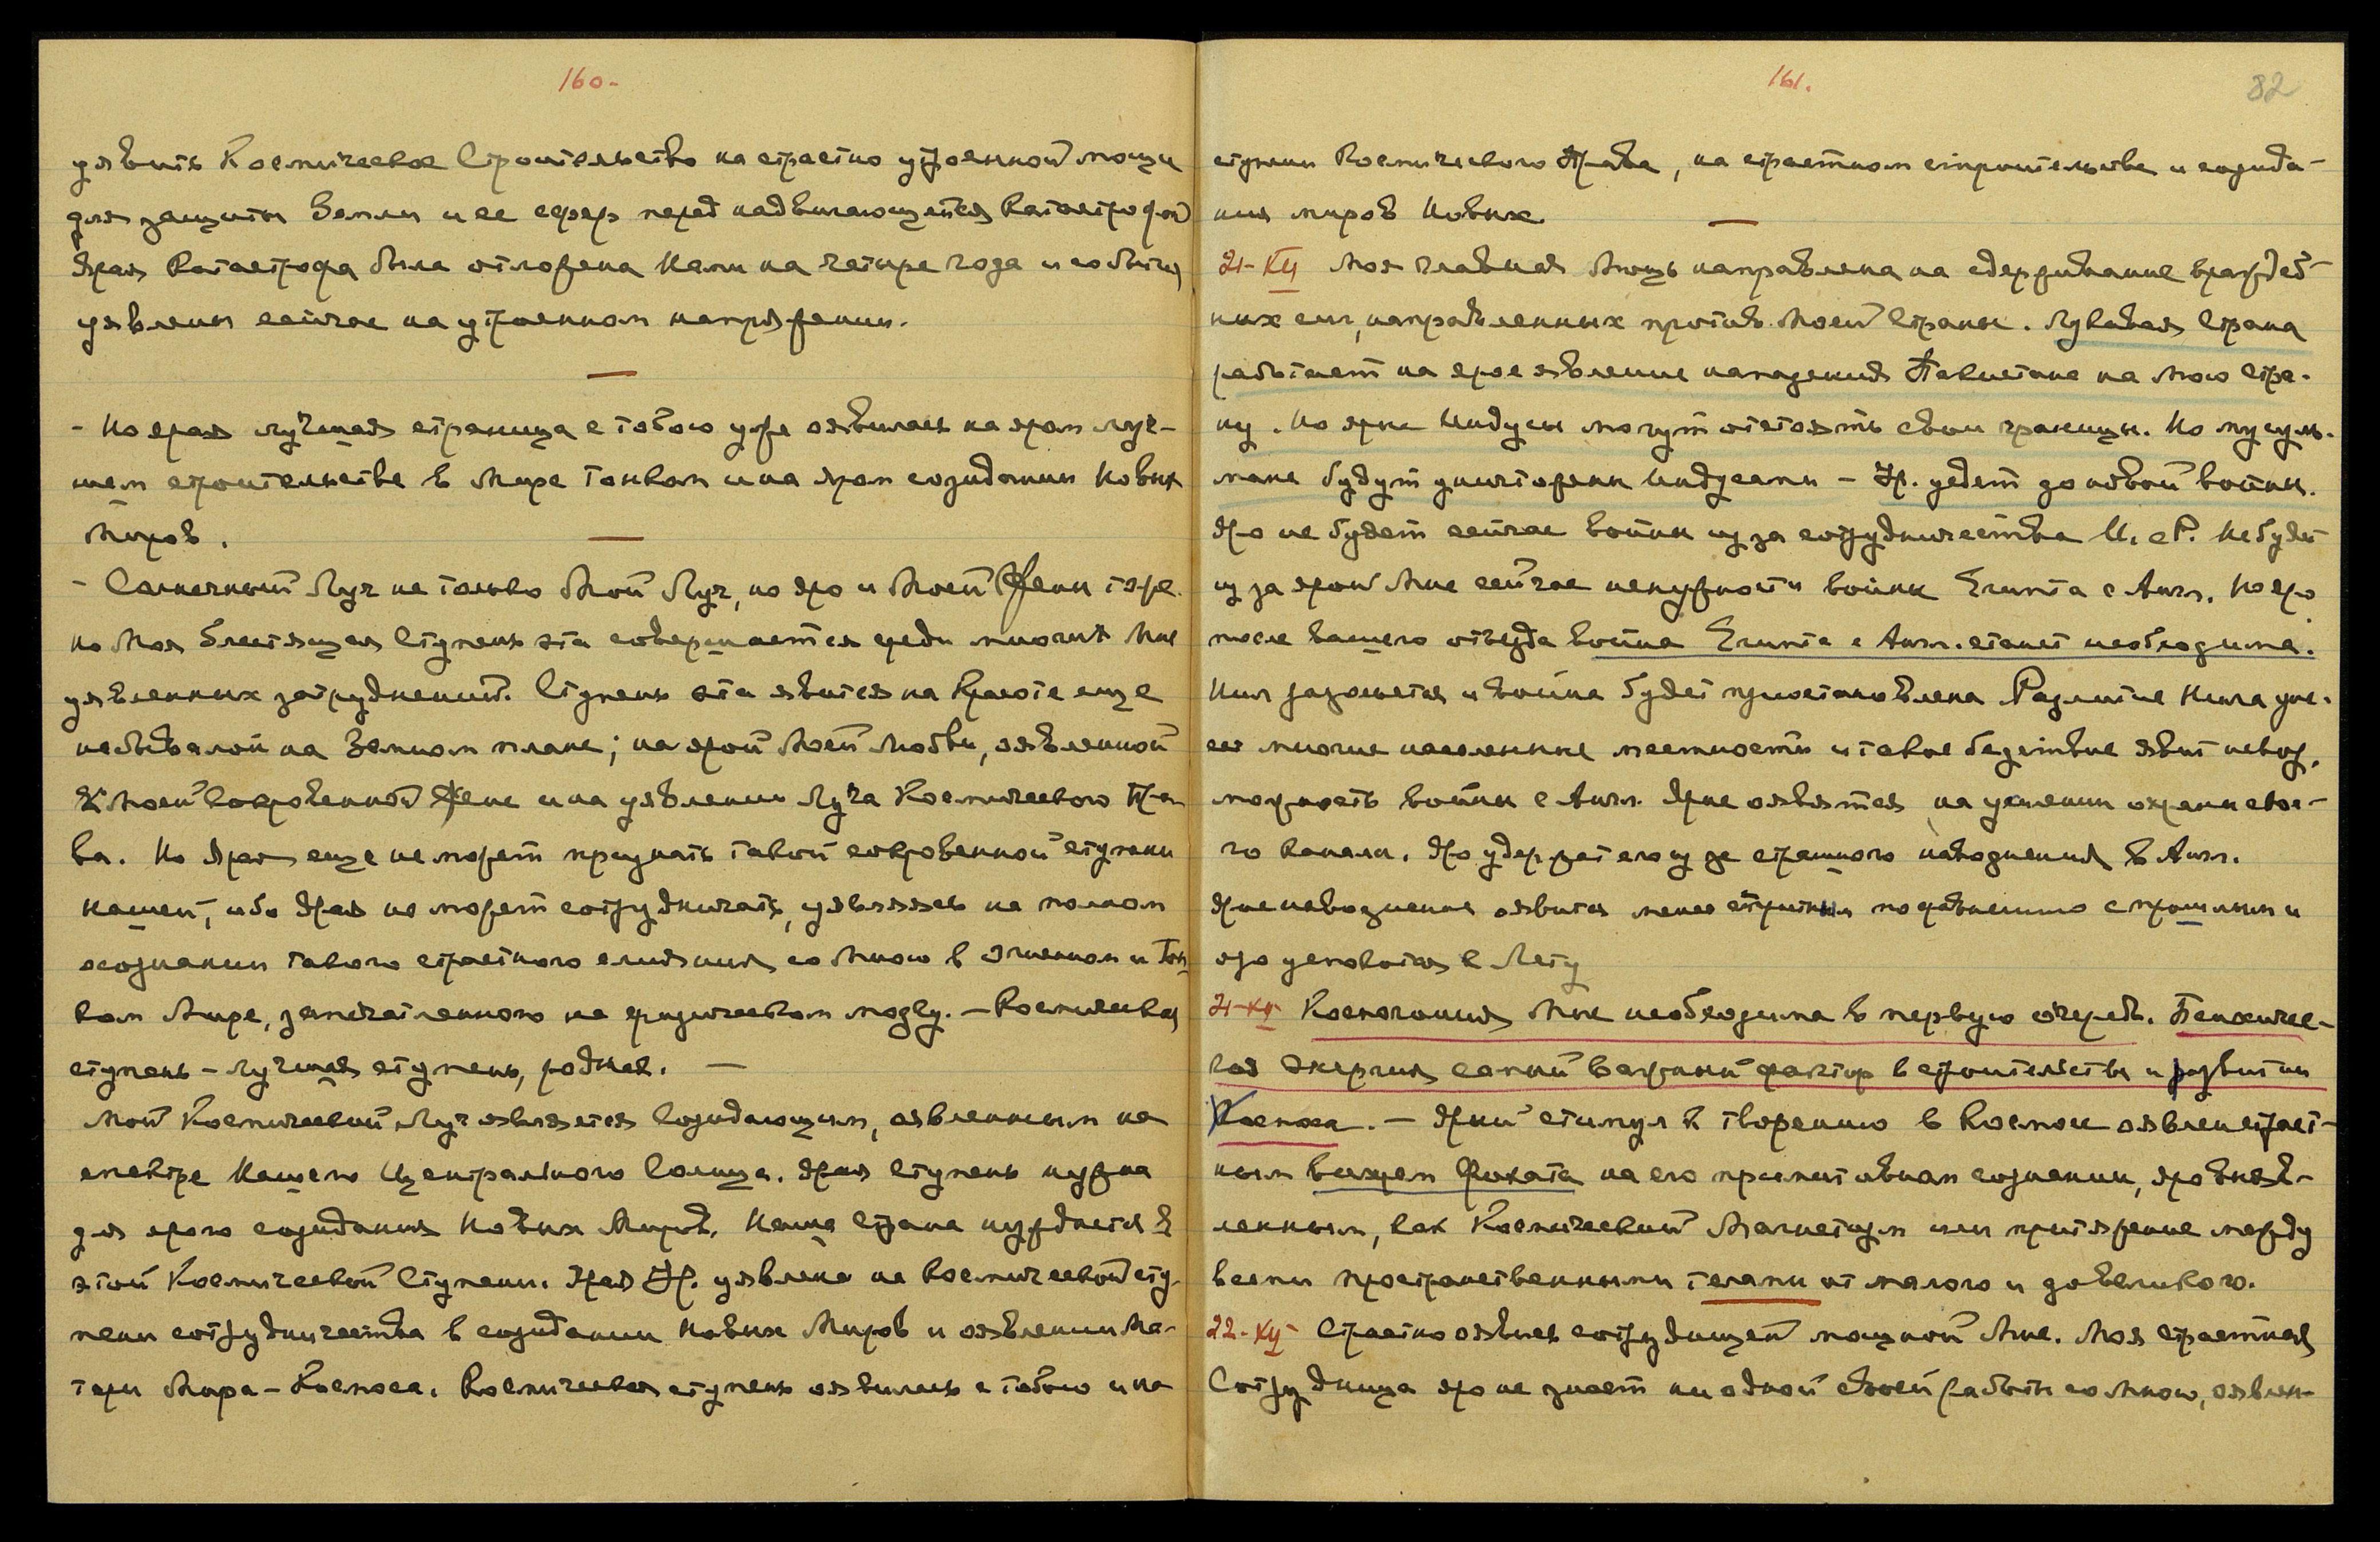 160-
уявить Космическое Строительство на страстно утроенной мощи
для защиты Земли и ее сфер перед надвигающейся Катастрофой
Ярая Катастрофа была отложена Нами на четыре года и события
уявлены сейчас на утроенном напряжении.
- Но ярая лучшая страница с тобою уже оявилась на яром луч-
шем строительстве в Мире Тонком и на яром созидании Новых
Миров.
- Солнечный Луч не только Мой Луч, но яро и Моей Жены тоже.
но Моя блестящая Ступень эта совершается среди многих Мне
уявленных затруднений. Ступень эта явится на Красоте еще
небывалой на Земном плане; на ярой Моей Любви, оявленной
к Моей Сокровенной Жене и на уявлении Луча Космического Пра-
ва. Но Ярая еще не может признать такой сокровенной ступени
нашей, ибо Ярая не может сотрудничать, уявляясь на полном
осознании такого страстного слияния со Мною в Огненном и Тон-
ком Мире, запечатленного на физическом мозгу. - Космическая
ступень - лучшая ступень, родная. —
Мой Космический Луч является Созидающим, оявленным на
спектре Нашего Центрального Солнца. Ярая Ступень нужна
для ярого созидания Новых Миров. Наша Страна нуждается в
этой Космической Ступени. Ярая Ур. уявлена на космической сту-
пени сотрудничества в созидании Новых Миров и оявлении Ма-
тери Мира - Космоса. Космическая ступень оявилась с тобою и на
161.
82
ступени Космического Права, на страстном строительстве и созида-
нии миров Новых.
21-XII Моя главная Мощь направлена на сдерживание враждеб-
ных сил, направленных против Моей Страны. Лукавая Страна
работает на ярое явление нападения Пакистана на Мою Стра-
ну. Но ярые Индусы могут отстоять свои границы. Но мусуль-
мане будут уничтожены Индусами - Ур. уедет до новой войны.
Яро не будет сейчас войны из за сотрудничества И. с Р. Не будет
из за ярой Мне сейчас ненужности войны Египта с Англ. Но яро
после вашего отъезда война Египта с Англ. станет необходима.
Нил разольется и война будет приостановлена Разлитие Нила уне-
сет многие населенные местности и такое бедствие явит невоз-
можность войны с Англ. Ярые оявятся на усилении охраны свое-
го канала. Яро удержат его из за страшного наводнения в Англ.
Ярые наводнения оявятся менее по сравнению с прошлым и
яро успокоятся к Лету
21-XII Космогония Мне необходима в первую очередь. Психичес-
кая Энергия самый важный фактор в строительстве и развитии
Космоса. - Ярый стимул к творению в Космосе оявлен страст-
ным вождем Фохата на его примитивном сознании, яро вняв-
ленным, как Космический Магнетизм или притяжение между
всеми пространственными телами от малого и до великого.
22-XII Страстно оявись сотрудницей мощной Мне. Моя страстная
Сотрудница яро не знает ни одной Своей работы со Мною, оявлен-